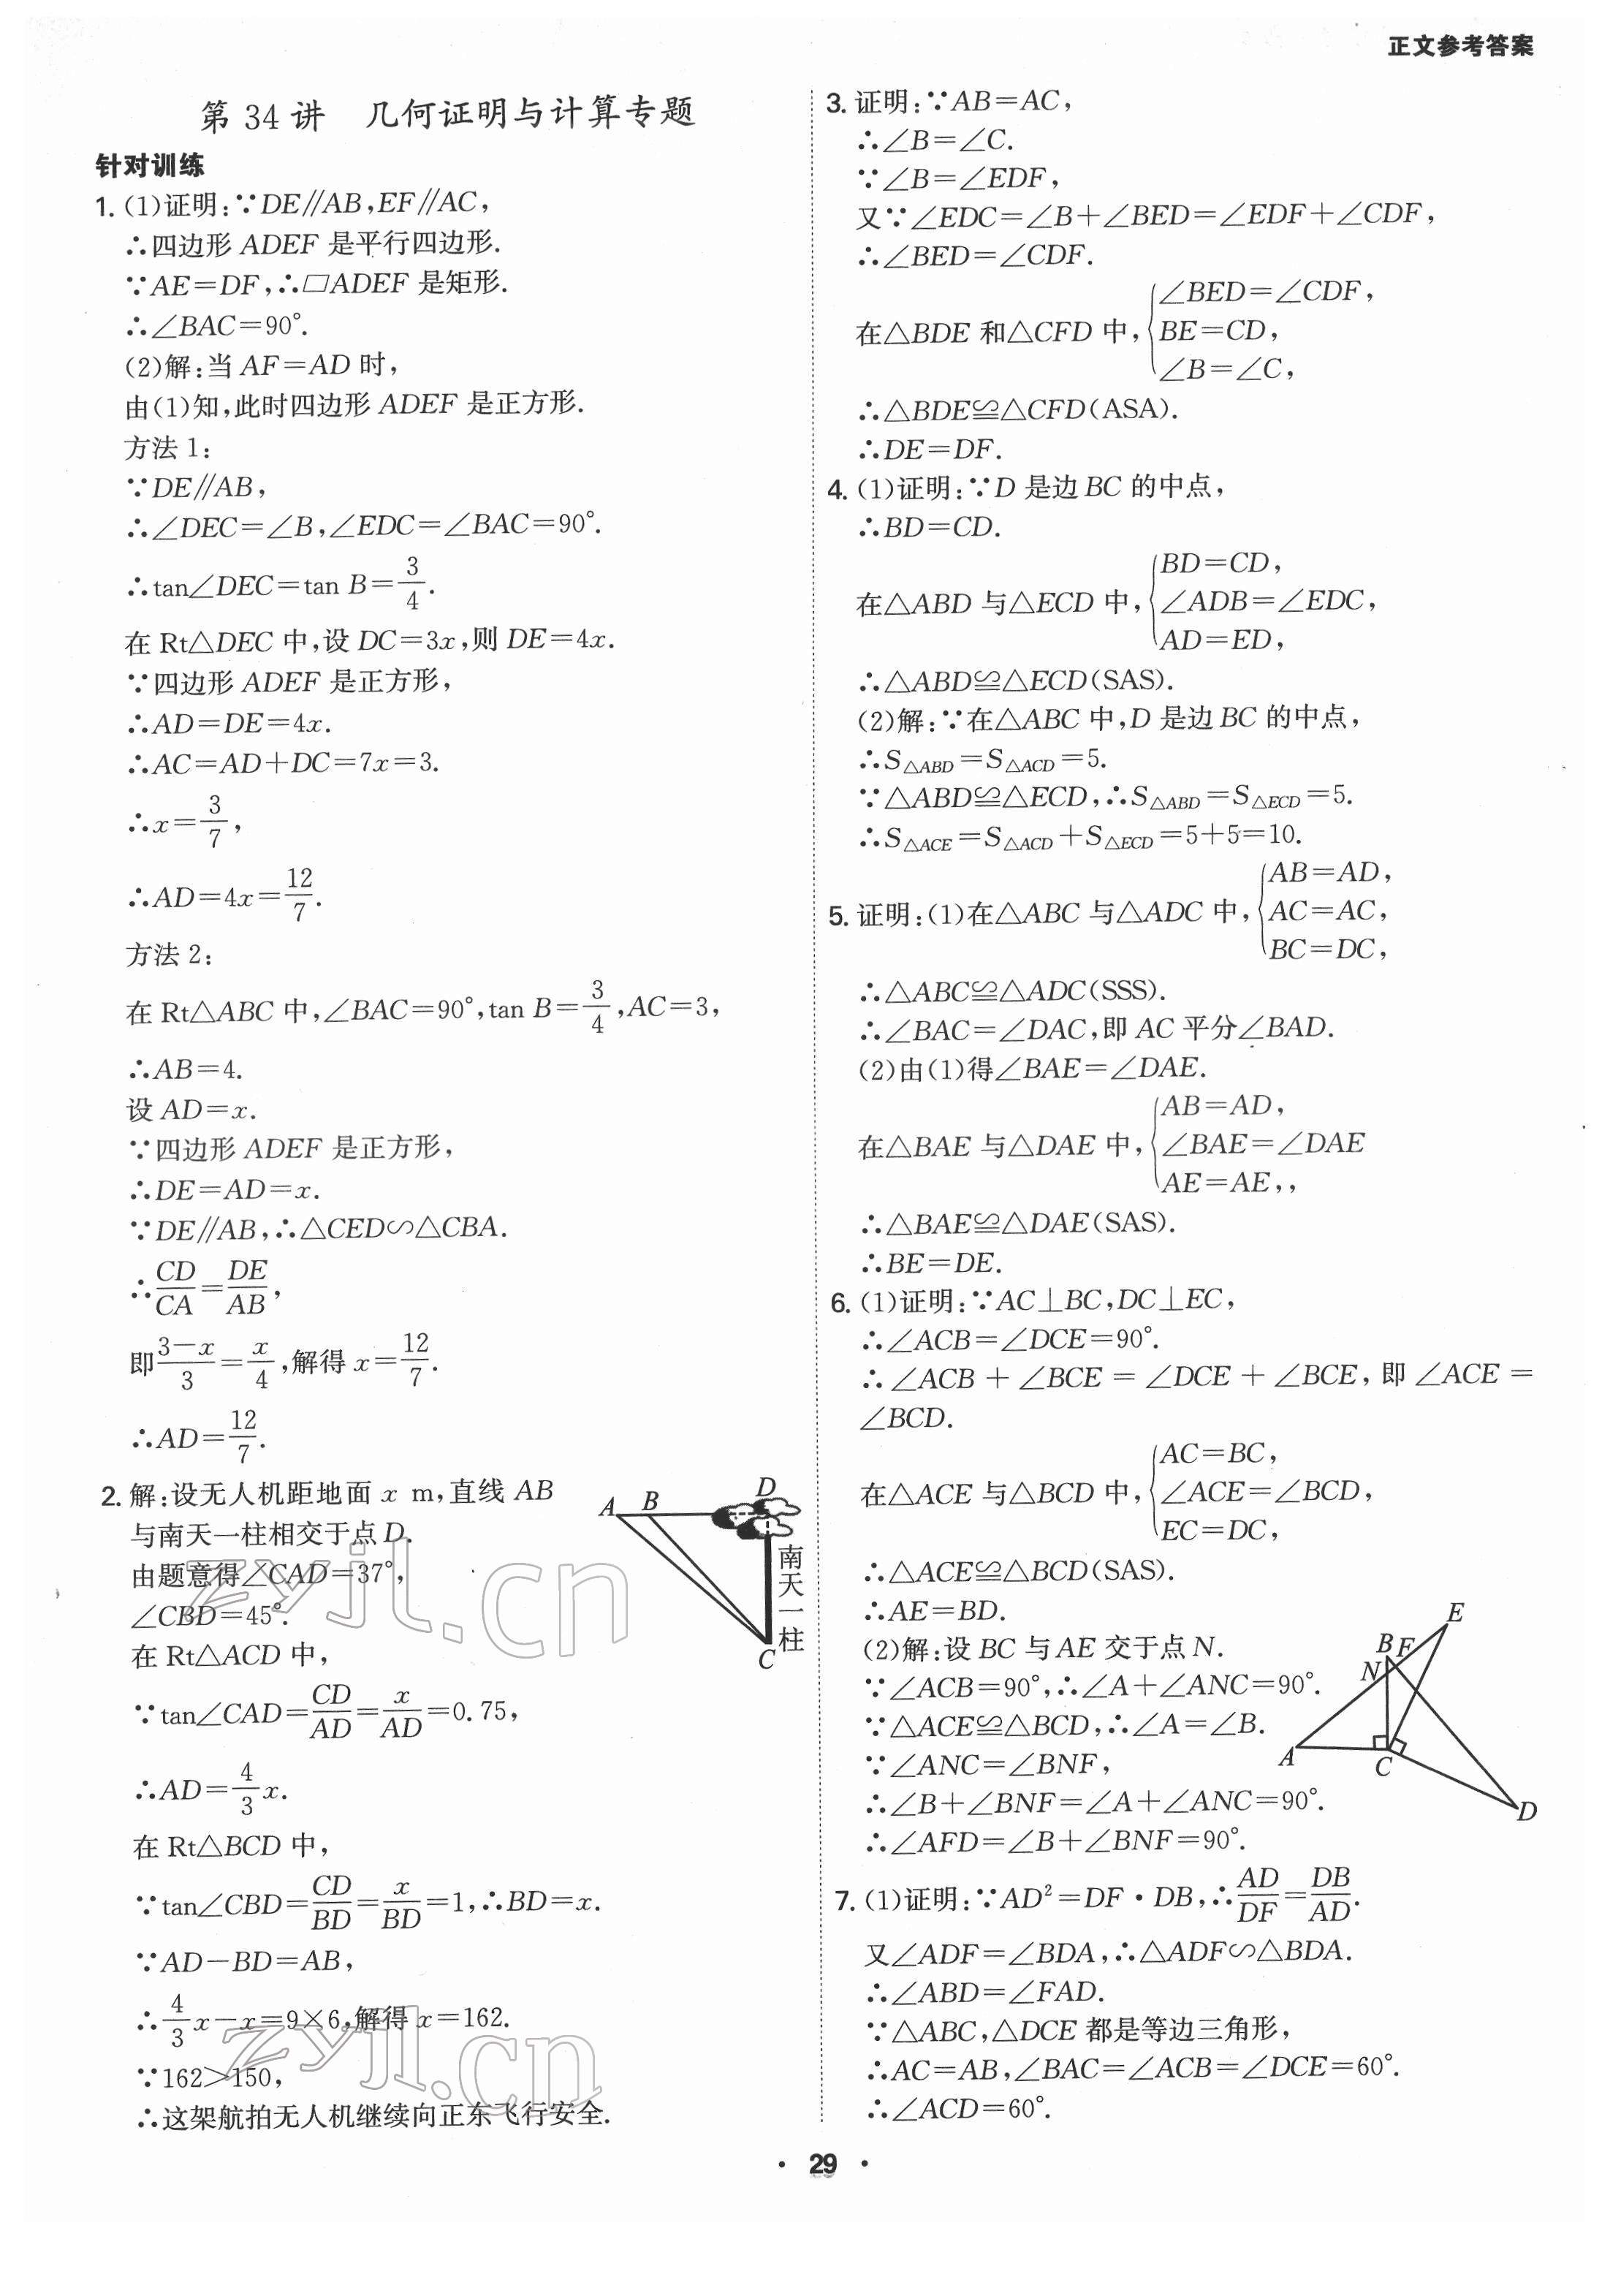 正文参考答案
第 34 讲　几何证明与计算专题
针对训练
1. (1)证明:∵DE∥AB,EF∥AC,
∴四边形 ADEF 是平行四边形.
∵AE=DF,∴▱ADEF 是矩形.
∴∠BAC=90°.
(2)解:当 AF=AD 时,
由(1)知,此时四边形 ADEF 是正方形.
方法 1:
∵DE∥AB,
∴∠DEC=∠B,∠EDC=∠BAC=90°.
∴tan∠DEC=tan B=3/4.
在 Rt△DEC 中,设 DC=3x,则 DE=4x.
∵四边形 ADEF 是正方形,
∴AD=DE=4x.
∴AC=AD+DC=7x=3.
∴x=3/7,
∴AD=4x=12/7.
方法 2:
在 Rt△ABC 中,∠BAC=90°,tan B=3/4,AC=3,
∴AB=4.
设 AD=x.
∵四边形 ADEF 是正方形,
∴DE=AD=x.
∵DE∥AB,∴△CED∽△CBA.
∴CD/CA=DE/AB,
即(3-x)/3=x/4,解得 x=12/7.
∴AD=12/7.
2. 解:设无人机距地面 x m,直线 AB
与南天一柱相交于点 D.
由题意得∠CAD=37°,
∠CBD=45°.
在 Rt△ACD 中,
∵tan∠CAD=CD/AD=x/AD=0.75,
∴AD=4/3x.
在 Rt△BCD 中,
∵tan∠CBD=CD/BD=x/BD=1,∴BD=x.
∵AD-BD=AB,
∴4/3x-x=9×6,解得 x=162.
∵162>150,
∴这架航拍无人机继续向正东飞行安全.
A B D
南天一柱
C
zyjl.cn
zyjl.cn
3. 证明:∵AB=AC,
∴∠B=∠C.
∵∠B=∠EDF,
又∵∠EDC=∠B+∠BED=∠EDF+∠CDF,
∴∠BED=∠CDF.
∠BED=∠CDF,
在△BDE 和△CFD 中,{BE=CD,
∠B=∠C,
∴△BDE≌△CFD(ASA).
∴DE=DF.
4. (1)证明:∵D 是边 BC 的中点,
∴BD=CD.
BD=CD,
在△ABD 与△ECD 中,{∠ADB=∠EDC,
AD=ED,
∴△ABD≌△ECD(SAS).
(2)解:∵在△ABC 中,D 是边 BC 的中点,
∴S△ABD=S△ACD=5.
∵△ABD≌△ECD,∴S△ABD=S△ECD=5.
∴S△ACE=S△ACD+S△ECD=5+5=10.
AB=AD,
5. 证明:(1)在△ABC 与△ADC 中,{AC=AC,
BC=DC,
∴△ABC≌△ADC(SSS).
∴∠BAC=∠DAC,即 AC 平分∠BAD.
(2)由(1)得∠BAE=∠DAE.
AB=AD,
在△BAE 与△DAE 中,{∠BAE=∠DAE
AE=AE,,
∴△BAE≌△DAE(SAS).
∴BE=DE.
6. (1)证明:∵AC⊥BC,DC⊥EC,
∴∠ACB=∠DCE=90°.
∴∠ACB+∠BCE=∠DCE+∠BCE,即∠ACE=
∠BCD.
AC=BC,
在△ACE 与△BCD 中,{∠ACE=∠BCD,
EC=DC,
∴△ACE≌△BCD(SAS).
∴AE=BD.
(2)解:设 BC 与 AE 交于点 N.
∵∠ACB=90°,∴∠A+∠ANC=90°.
∵△ACE≌△BCD,∴∠A=∠B.
∵∠ANC=∠BNF,
∴∠B+∠BNF=∠A+∠ANC=90°.
∴∠AFD=∠B+∠BNF=90°.
E
B F
N
A C
D
7. (1)证明:∵AD²=DF·DB,∴AD/DF=DB/AD.
又∠ADF=∠BDA,∴△ADF∽△BDA.
∴∠ABD=∠FAD.
∵△ABC,△DCE 都是等边三角形,
∴AC=AB,∠BAC=∠ACB=∠DCE=60°.
∴∠ACD=60°.
· 29 ·